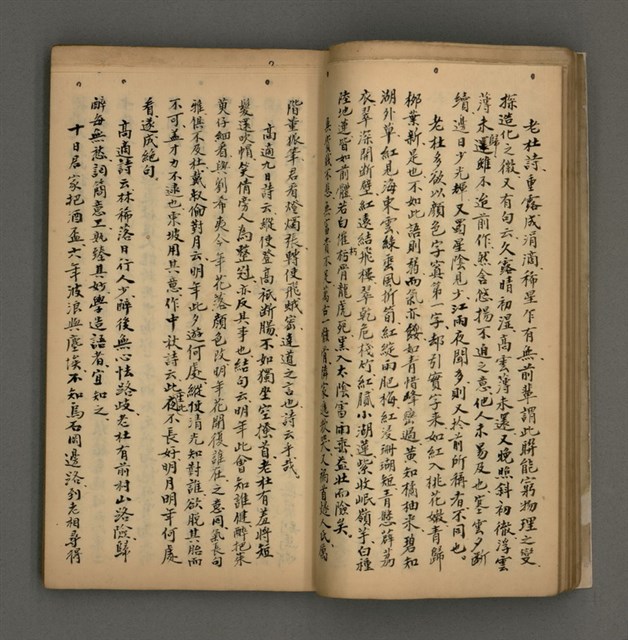 老杜詩重露成涓滴稀星乍有無前輩謂此聯能窮物理之變
探造化之微又有句云久露晴初濕高雲薄未還又晚照斜初徹浮雲
薄未還歸雖不迨前作然含悠揚不迫之意他人未易及也寒雲夕斷
續邊日少光輝又蜀星陰見少江雨夜聞多則又於前所稱者不同也
老杜多欲以顏色字寘第一字却引實字來如紅入桃花嫩青歸
柳葉新是也不如此語則弱而氣亦餒如青惜峰巒過黃知橘柚來碧知
湖外草紅見海東雲綠垂風折筍紅綻雨肥梅紅浸珊瑚短青懸薜荔
衣翠深開斷壁紅遠結飛樓翠乾危棧竹紅膩小湖蓮紫收岷嶺芋白種
陸地蓮皆如前體若白摧朽骨龍虎死黑入太陰雷雨垂益壯而險矣
階重振筆君看燈燭張轉使飛蛾密達道之言也詩云乎哉
高適九日詩云縱使登高祇斷腸不如獨坐空搔首老杜有羞將短
髮還吹帽笑倩旁人為整冠亦反其事也結句云明年此會知誰健醉把茱
萸仔細看與劉希夷今年花落顏色改明年花開復誰在之意同氣長句
雅俱不及杜戴叔倫對月云明年此夕遊何處縱使清光知對誰欲脫其胎而
不可蓋才力不逮也東坡用其意作中秋詩云此生此夜不長好明月明年何處
看遂成絕句
高適詩云林稀落日行人少醉後無心怯路歧老杜有前村山路險歸
醉每無愁詞簡意工孰臻其妙學造語者宜知之
十日君家把酒盃六年波浪與塵埃不知烏石岡邊路到老相尋得